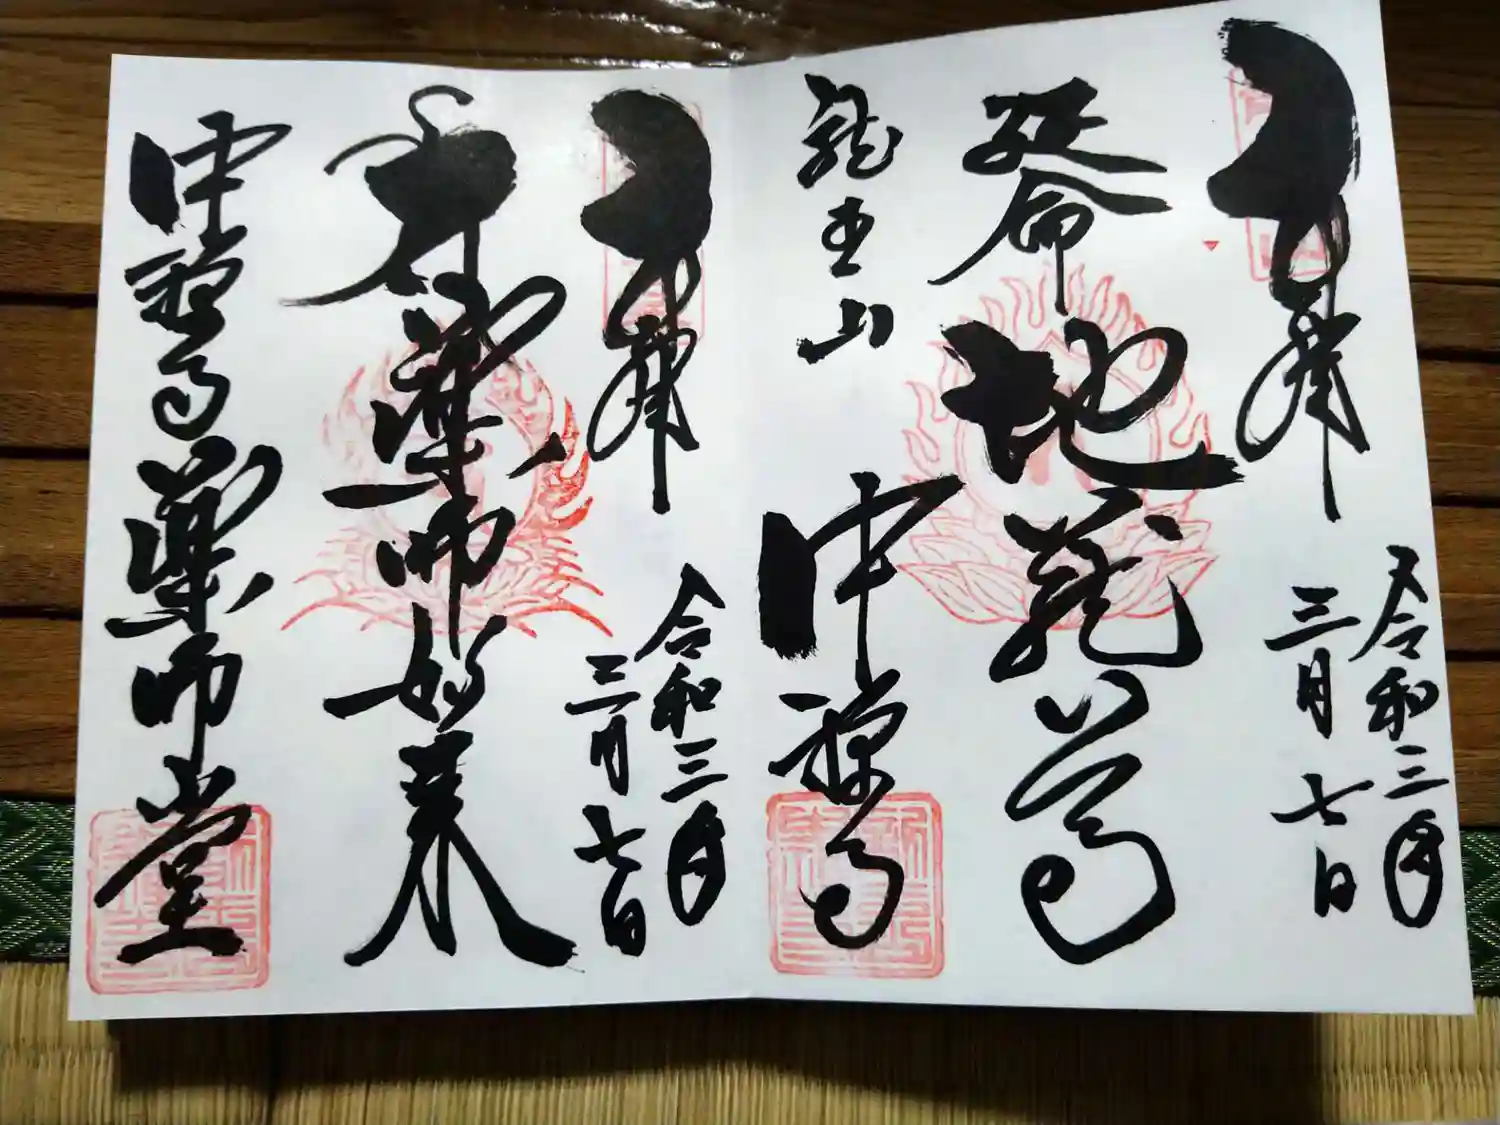 奉拝
令和三年
三月七日
延命地蔵尊
龍王山
中禅寺
奉拝
令和三年
三月七日
薬師如来
中禅寺薬師堂